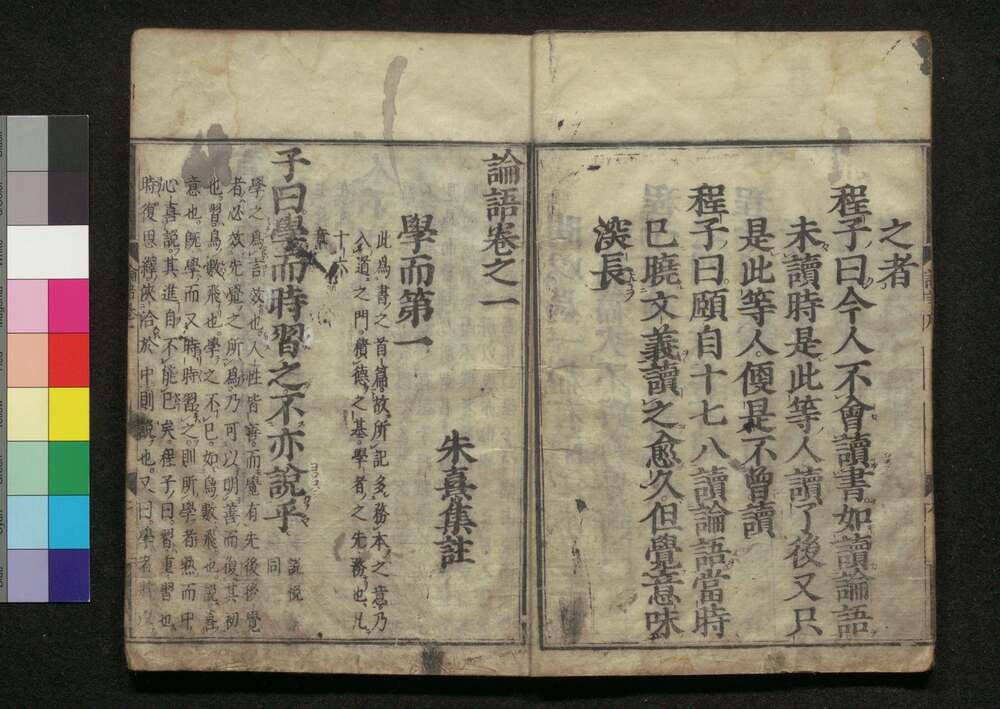 之者
程子曰今人不會讀書如讀論語
未讀時是此等人讀了後又只
是此等人便是不曾讀
程子曰頤自十七八讀論語當時
已曉文義讀之愈久但覺意味
深長
論語卷之一
朱熹集註
學而第一
此為書之首篇故所記多務本之意乃
入道之門積德之基學者之先務也凡
十六章
子曰學而時習之不亦說乎
說悅
同
學之為言效也人性皆善而覺有先後後覺
者必效先覺之所為乃可以明善而復其初
也習鳥數飛也學之不已如鳥數飛也說喜
意也既學而又時時習之則所學者熟而中
心喜說其進自不能已矣程子曰習重習也
時復思繹浹洽於中則說也又曰學者將以